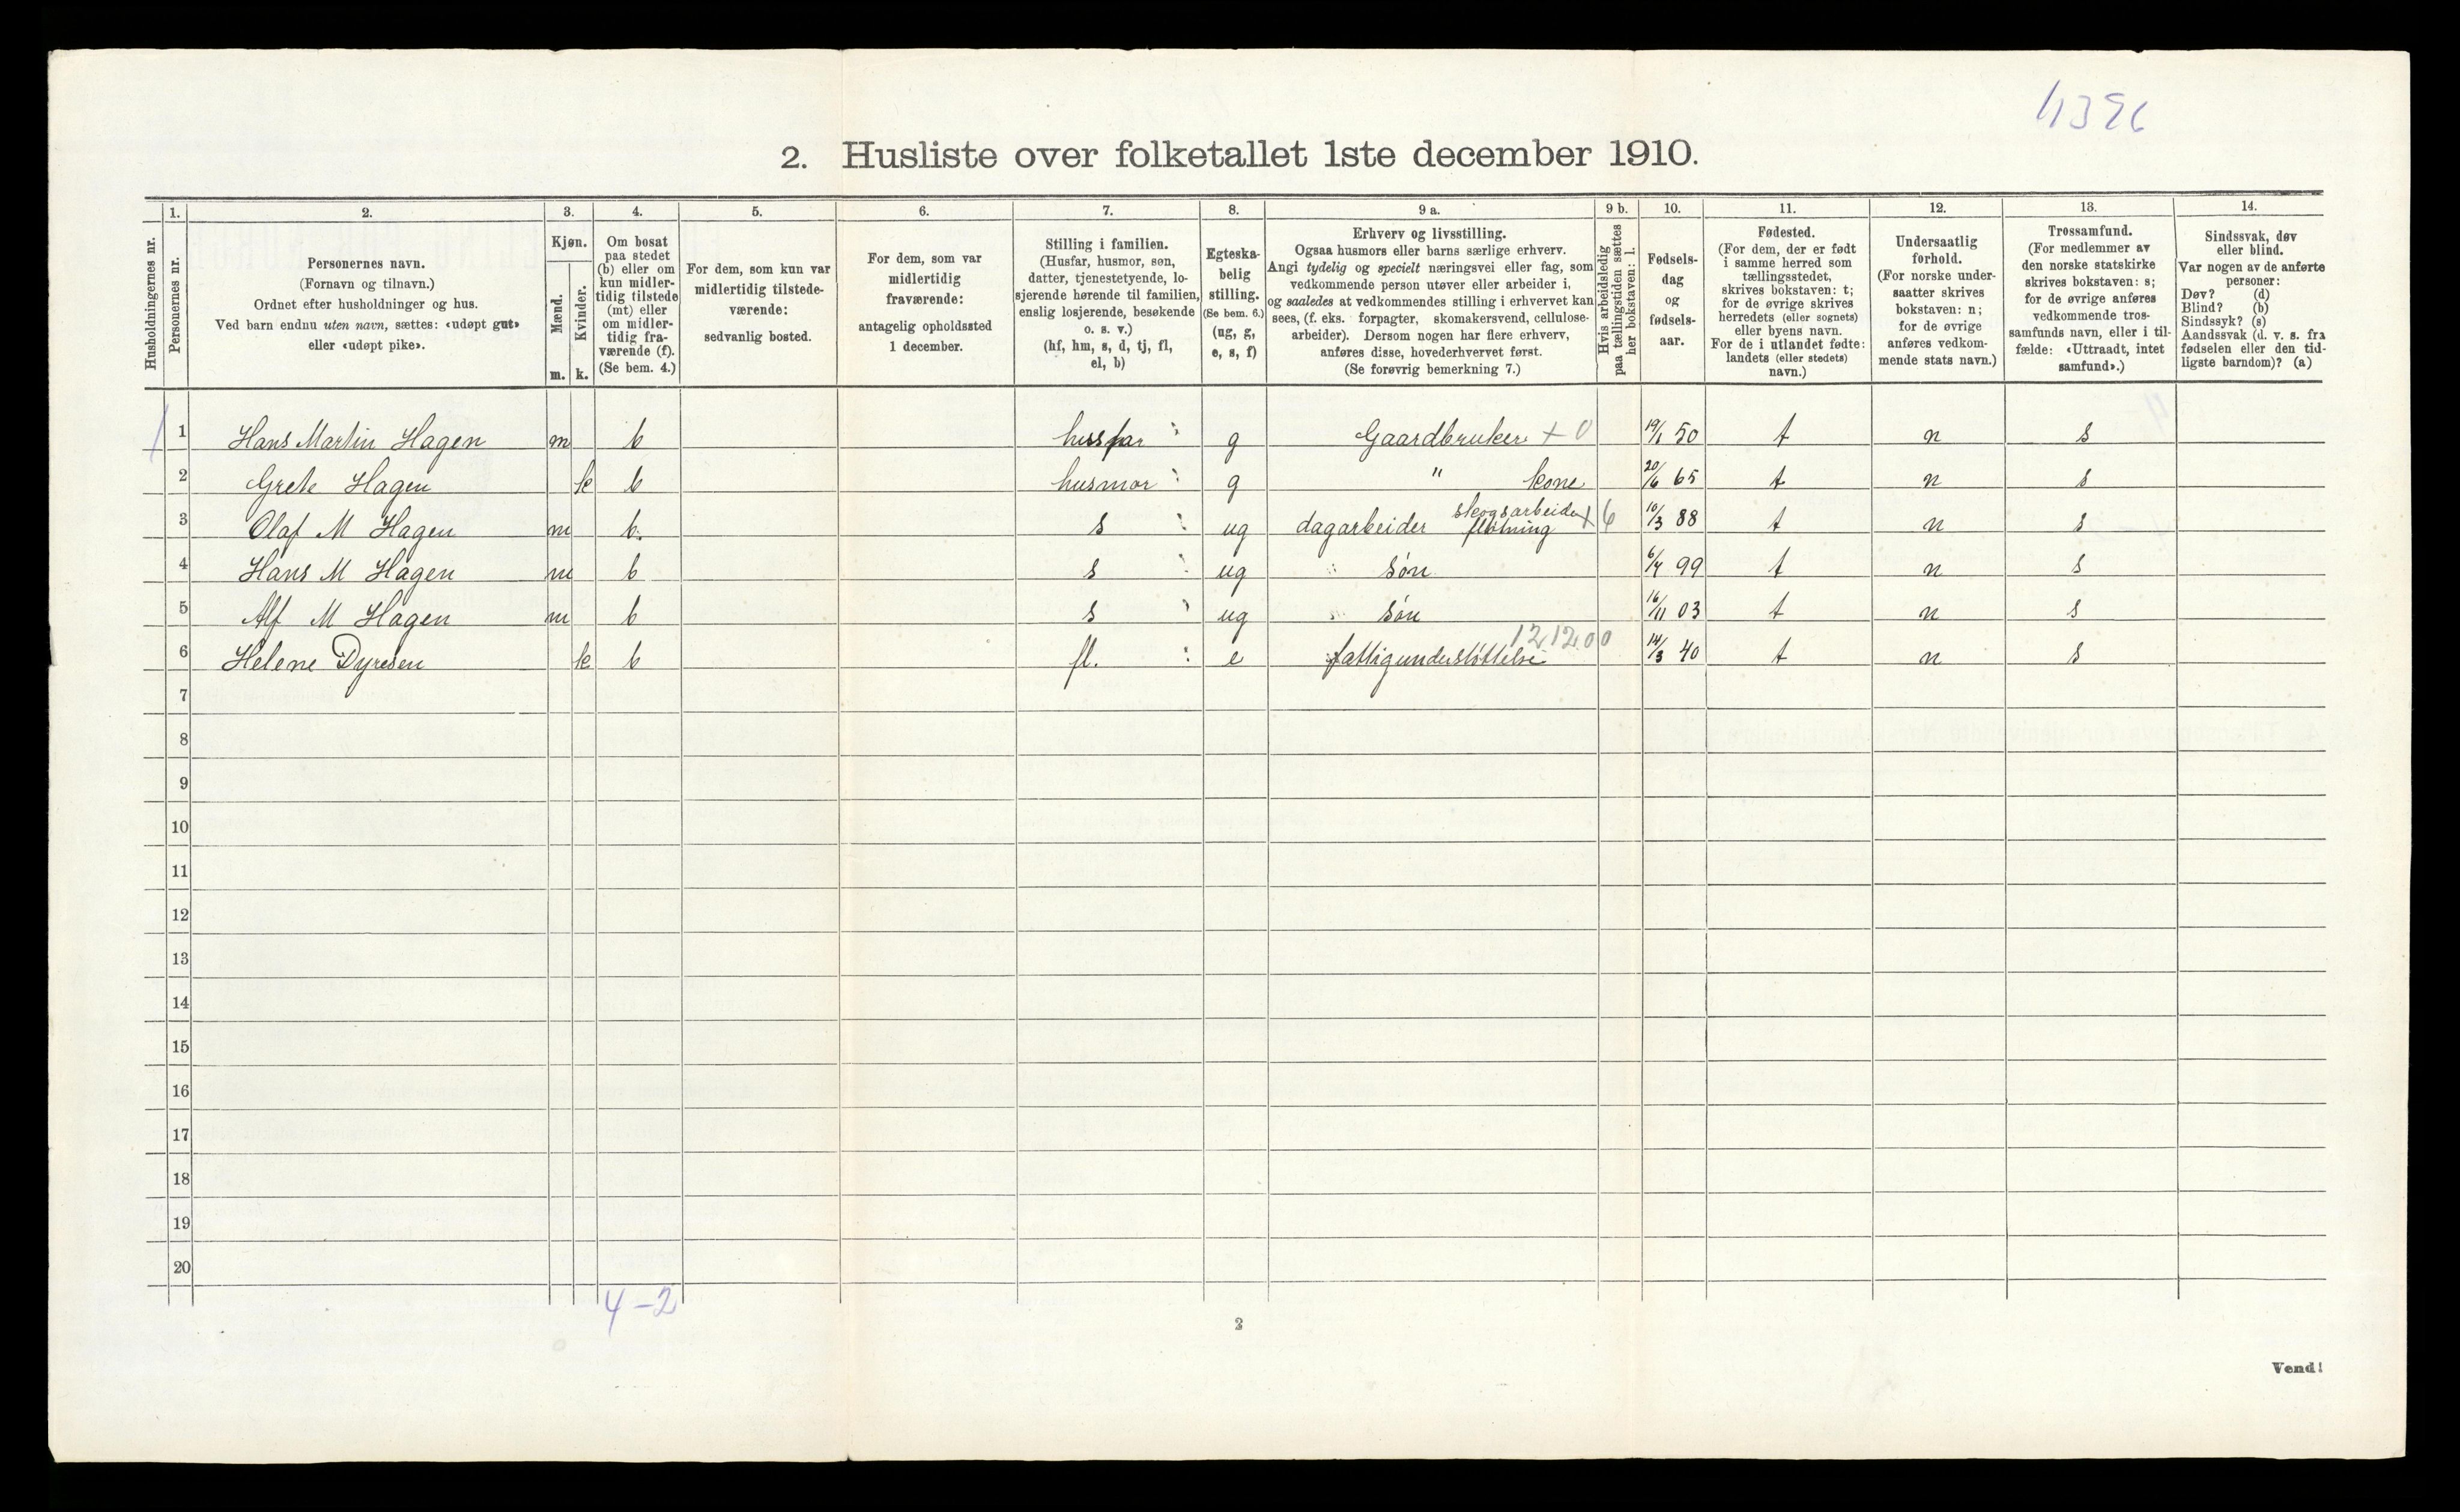 4396
2. Husliste over folketallet 1ste december 1910.
1. 2. 3. 4. 5. 6. 7. 8. 9 a. 9 b. 10. 11. 12. 13. 14.
Husholdningernes nr.
Personernes nr.
Personernes navn.
(Fornavn og tilnavn.)
Ordnet efter husholdninger og hus.
Ved barn endnu uten navn, sættes: «udøpt gut»
eller «udøpt pike».
Kjøn.
Mænd.
Kvinder.
m. k.
Om bosat
paa stedet
(b) eller om
kun midler-
tidig tilstede
(mt) eller
om midler-
tidig fra-
værende (f).
(Se bem. 4.)
For dem, som kun var
midlertidig tilstede-
værende:
sedvanlig bosted.
For dem, som var
midlertidig
fraværende:
antagelig opholdssted
1 december.
Stilling i familien.
(Husfar, husmor, søn,
datter, tjenestetyende, lo-
sjerende hørende til familien,
enslig losjerende, besøkende
o. s. v.)
(hf, hm, s, d, tj, fl,
el, b)
Egteska-
belig
stilling.
(Se bem. 6.)
(ug, g,
e, s, f)
Erhverv og livsstilling.
Ogsaa husmors eller barns særlige erhverv.
Angi tydelig og specielt næringsvei eller fag, som
vedkommende person utøver eller arbeider i,
og saaledes at vedkommendes stilling i erhvervet kan
sees, (f. eks. forpagter, skomakersvend, cellulose-
arbeider). Dersom nogen har flere erhverv,
anføres disse, hovederhvervet først.
(Se forøvrig bemerkning 7.)
Hvis arbeidsledig
paa tællingstiden sættes
her bokstaven: l.
Fødsels-
dag
og
fødsels-
aar.
Fødested.
(For dem, der er født
i samme herred som
tællingsstedet,
skrives bokstaven: t;
for de øvrige skrives
herredets (eller sognets)
eller byens navn.
For de i utlandet fødte:
landets (eller stedets)
navn.)
Undersaatlig
forhold.
(For norske under-
saatter skrives
bokstaven: n;
for de øvrige
anføres vedkom-
mende stats navn.)
Trossamfund.
(For medlemmer av
den norske statskirke
skrives bokstaven: s;
for de øvrige anføres
vedkommende tros-
samfunds navn, eller i til-
fælde: «Uttraadt, intet
samfund».)
Sindssvak, døv
eller blind.
Var nogen av de anførte
personer:
Døv? (d)
Blind? (b)
Sindssyk? (s)
Aandssvak (d. v. s. fra
fødselen eller den tid-
ligste barndom)? (a)
1 1 Hans Martin Hagen m b husfar g Gaardbruker + 0 19/1 50 t n s
2 Grete Hagen k b husmor g " kone 20/6 65 t n s
3 Olaf M Hagen m b. s ug dagarbeider skogsarbeide fløtning + 6 10/3 88 t n s
4 Hans M Hagen m b s ug " søn 6/4 99 t n s
5 Alf M Hagen m b s ug " søn 16/11 03 t n s
6 Helene Dyresen k b fl. e fattigunderstøttelse 12.12.00 14/3 40 t n s
7
8
9
10
11
12
13
14
15
16
17
18
19
20
4-2
2
Vend!